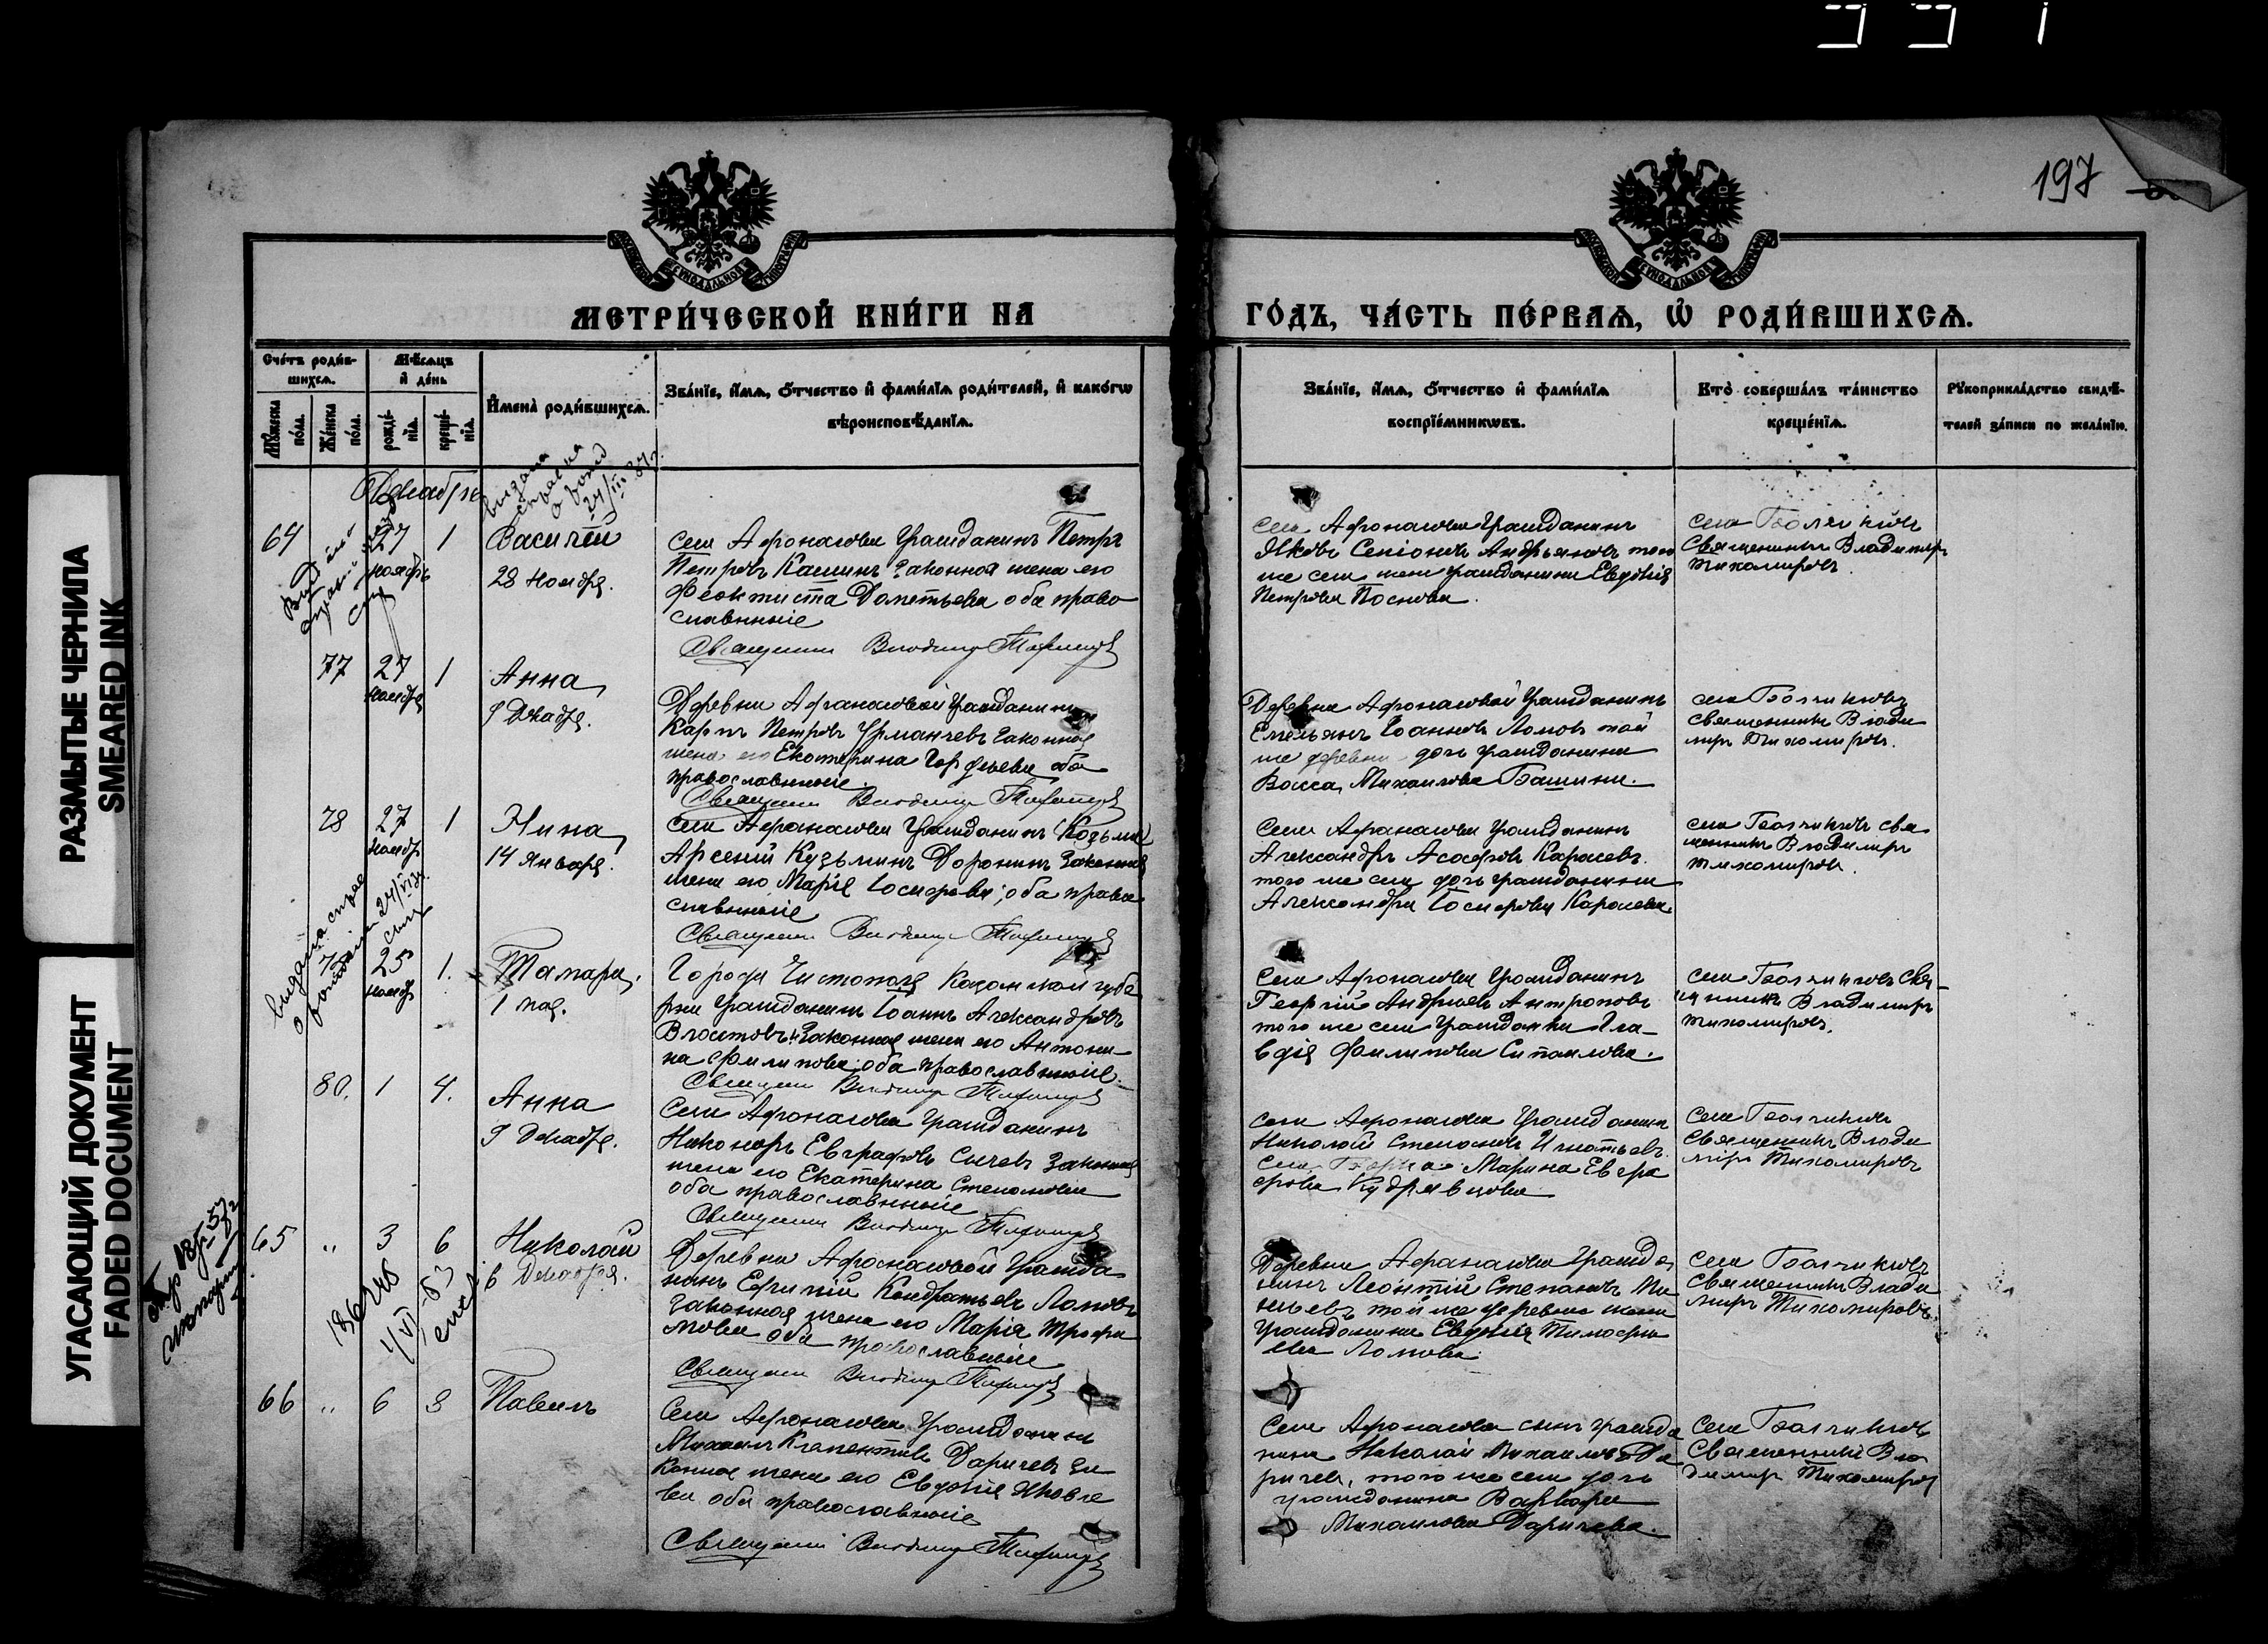 197
МЕТРИ́ЧЕСКОЙ КНИ́ГИ НА
ГО́ДЪ, ЧА́СТЬ ПЕ́РВАѦ, Ѡ҆ РОДИ́ВШИХСѦ.
Сче́тъ роди́в-
шихсѧ.
Мꙋ́жеска по́ла.
Же́нска по́ла.
Мѣ́сѧцъ
и҆ де́нь
рожде́-
нїѧ.
креще́-
нїѧ.
И҆мена̀ роди́вшихсѧ.
Зва́нїе, и҆́мѧ, ѻ҆́тчество и҆ фами́лїѧ роди́телей, и҆ како́гѡ
вѣроисповѣ́данїѧ.
Зва́нїе, и҆́мѧ, ѻ҆́тчество и҆ фами́лїѧ
воспрїе́мникѡвъ.
Кто̀ соверша́лъ та́инство
креще́нїѧ.
Рꙋкоприкла́дство свидѣ́-
телей за́писи по жела́нїю.
Декабрь
выдана
справка
о рожд
24/III
64
27
ноября
1
Василій
28 Ноября.
села Афонасова Гражданинъ Петръ
Петровъ Кашинъ законная жена его
Феоктиста Дометьева оба право
славныіе
Священник Владимир Тихомиров
села Афонасова Гражданинъ
Яковъ Семіоновъ Андрьяновъ того
же села жена гражданина Евдокія
Петрова Поснова.
села Болчиковъ
Священникъ Владимиръ
Тихомировъ.
77
27
ноября
1
Анна
9 Декабря.
Деревни Афонасовой Гражданинъ
Карпъ Петровъ Урманчевъ законная
жена его Екатерина Гордѣева оба
православныіе.
Священник Владимир Тихомиров
Деревни Афонасовой Гражданинъ
Емельянъ Іоанновъ Ломовъ той
же деревни дочь гражданина
Васса Михаилова Башина.
села Болчиковъ
священникъ Влади
миръ Тихомировъ.
78
27
ноябр
1
Нина
14 Января.
села Афонасова Гражданинъ (Козьма)
Арсеній Кузьминъ Доронинъ законная
жена его Марія Іосифова; оба право
славныіе
Священник Владимир Тихомиров
Села Афонасова Гражданинъ
Александръ Асафовъ Карасевъ.
того же села дочь гражданина
Александра Іосифова Карасева
села Болчиковъ свя
щенникъ Владимиръ
Тихомировъ.
выдана справ
о рождении 24/VI
25
ноябр
1.
Тамара.
1 мая.
Города Чистополя Казанской губе
рни Гражданинъ Іоаннъ Александровъ
законная жена его Антони-
на Филипова; оба православныіе.
Священник Владимир Тихомиров
Села Афонасова Гражданинъ
Георгій Андреевъ Антроповъ
того же села Гражданка Кла-
вдія Филипова Ситаилова.
села Болчиковъ Свя-
щенникъ Владимиръ
Тихомировъ.
80.
1
4.
Анна
9 Декабря.
Села Афонасова Гражданинъ
Никоноръ Евграфовъ Сычевъ законная
жена его Екатерина Степановна
оба православныіе
Священник Владимир Тихомиров
села Афонасова Гражданинъ
Николай Степановъ Игнатьевъ.
села Марина Евгра
фова Кудрявцова
села Болчиковъ
Священникъ Влади
миръ Тихомировъ
65
"
3
6
Николай
6 Декабря.
Деревни Афонасовой Гражда
нинъ Ефимій Кондратьевъ Ломовъ
законная жена его Марія Трофи
мова оба православныіе
Священник Владимир Тихомиров
Деревни Афонасова Гражда
нинъ Леонтій Степановъ
той же деревни жена
Гражданина Евдокія Тимофѣ
ева Ломова.
села Болчиковъ
Священникъ Влади
миръ Тихомировъ.
66
"
6
8
Павелъ
Села Афонасова Гражданинъ
Михаилъ Клементьев Даричевъ за
конная жена его Евдокія Яковле
ва оба православныіе
Священник Владимир Тихомиров
Села Афонасова сынъ гражда
нина Николай Михаиловъ Да
ричевъ, того же села дочь
гражданина Варвара
Михаилова Даричева.
Села Болчиковъ
Священникъ Вла
димиръ Тихомировъ
РАЗМЫТЫЕ ЧЕРНИЛА
SMEARED INK
УГАСАЮЩИЙ ДОКУМЕНТ
FADED DOCUMENT